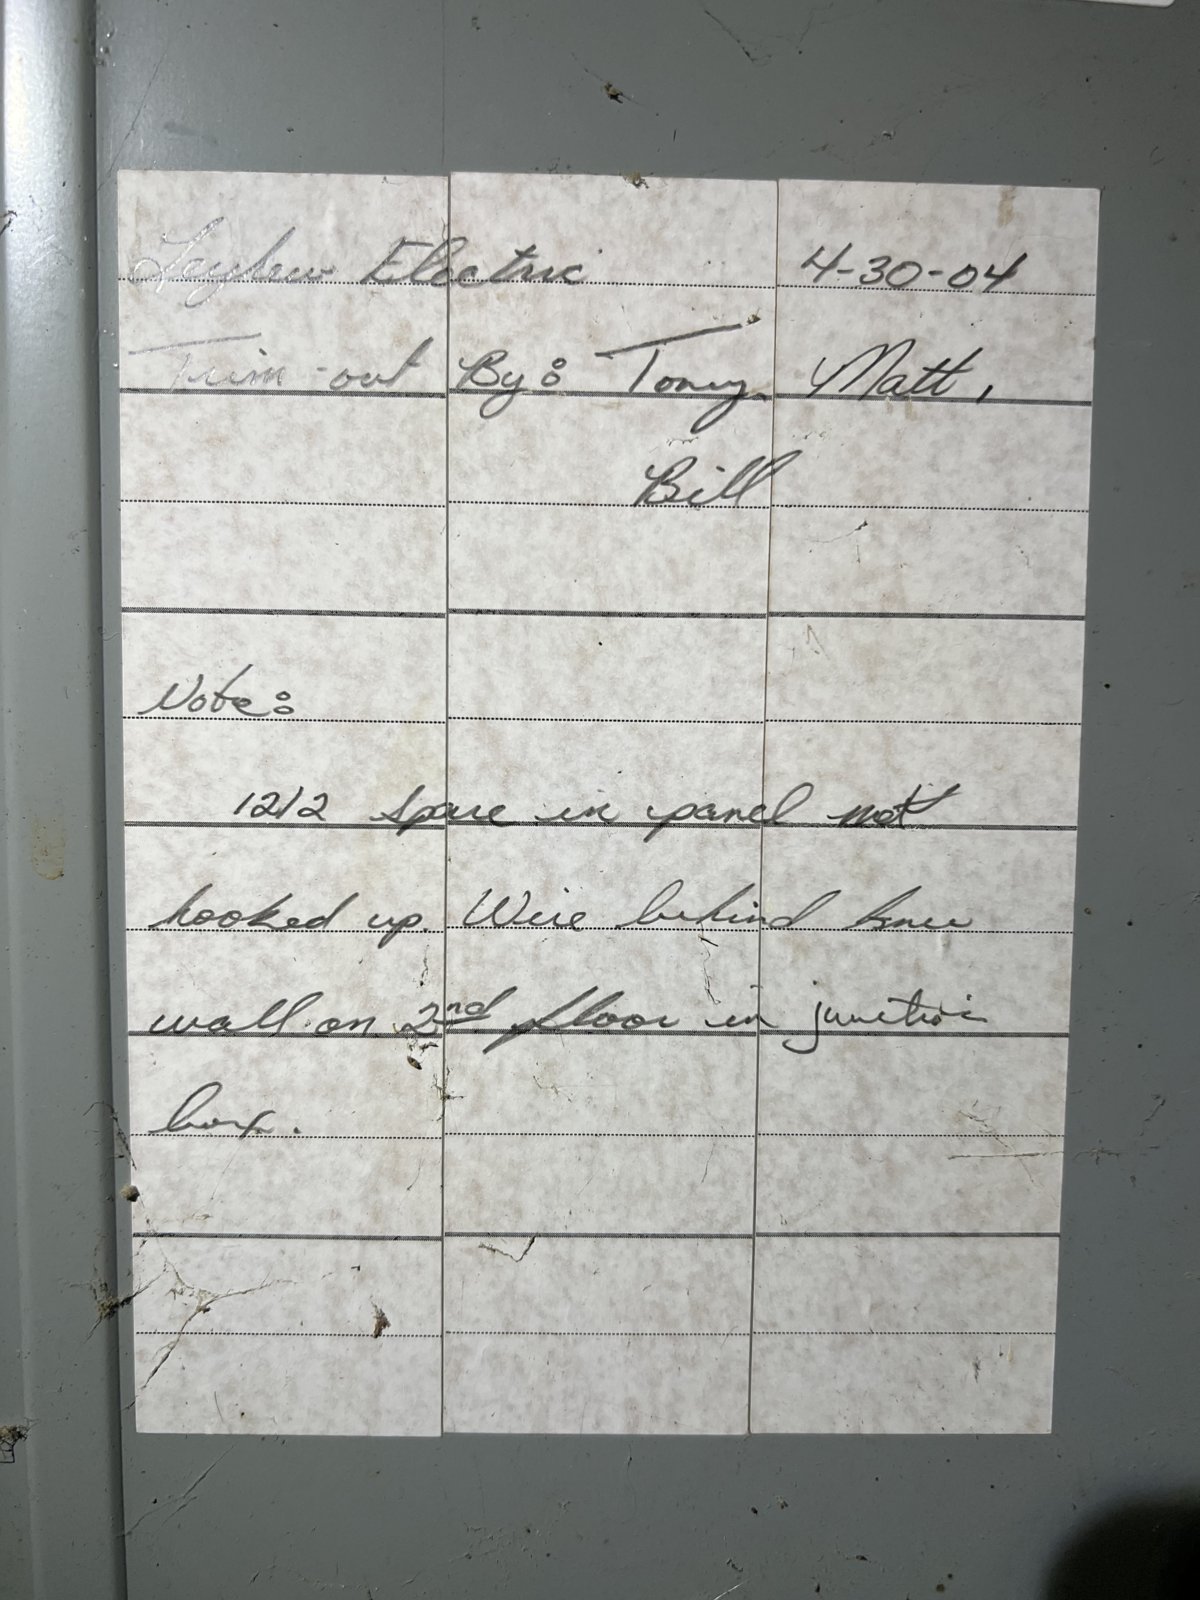 Electric 4-30-04
Trim-out By: Toney, Matt,
Bill
Note:
12/2 spare in panel not
hooked up. Wire behind knee
wall on 2nd floor in junction
box.